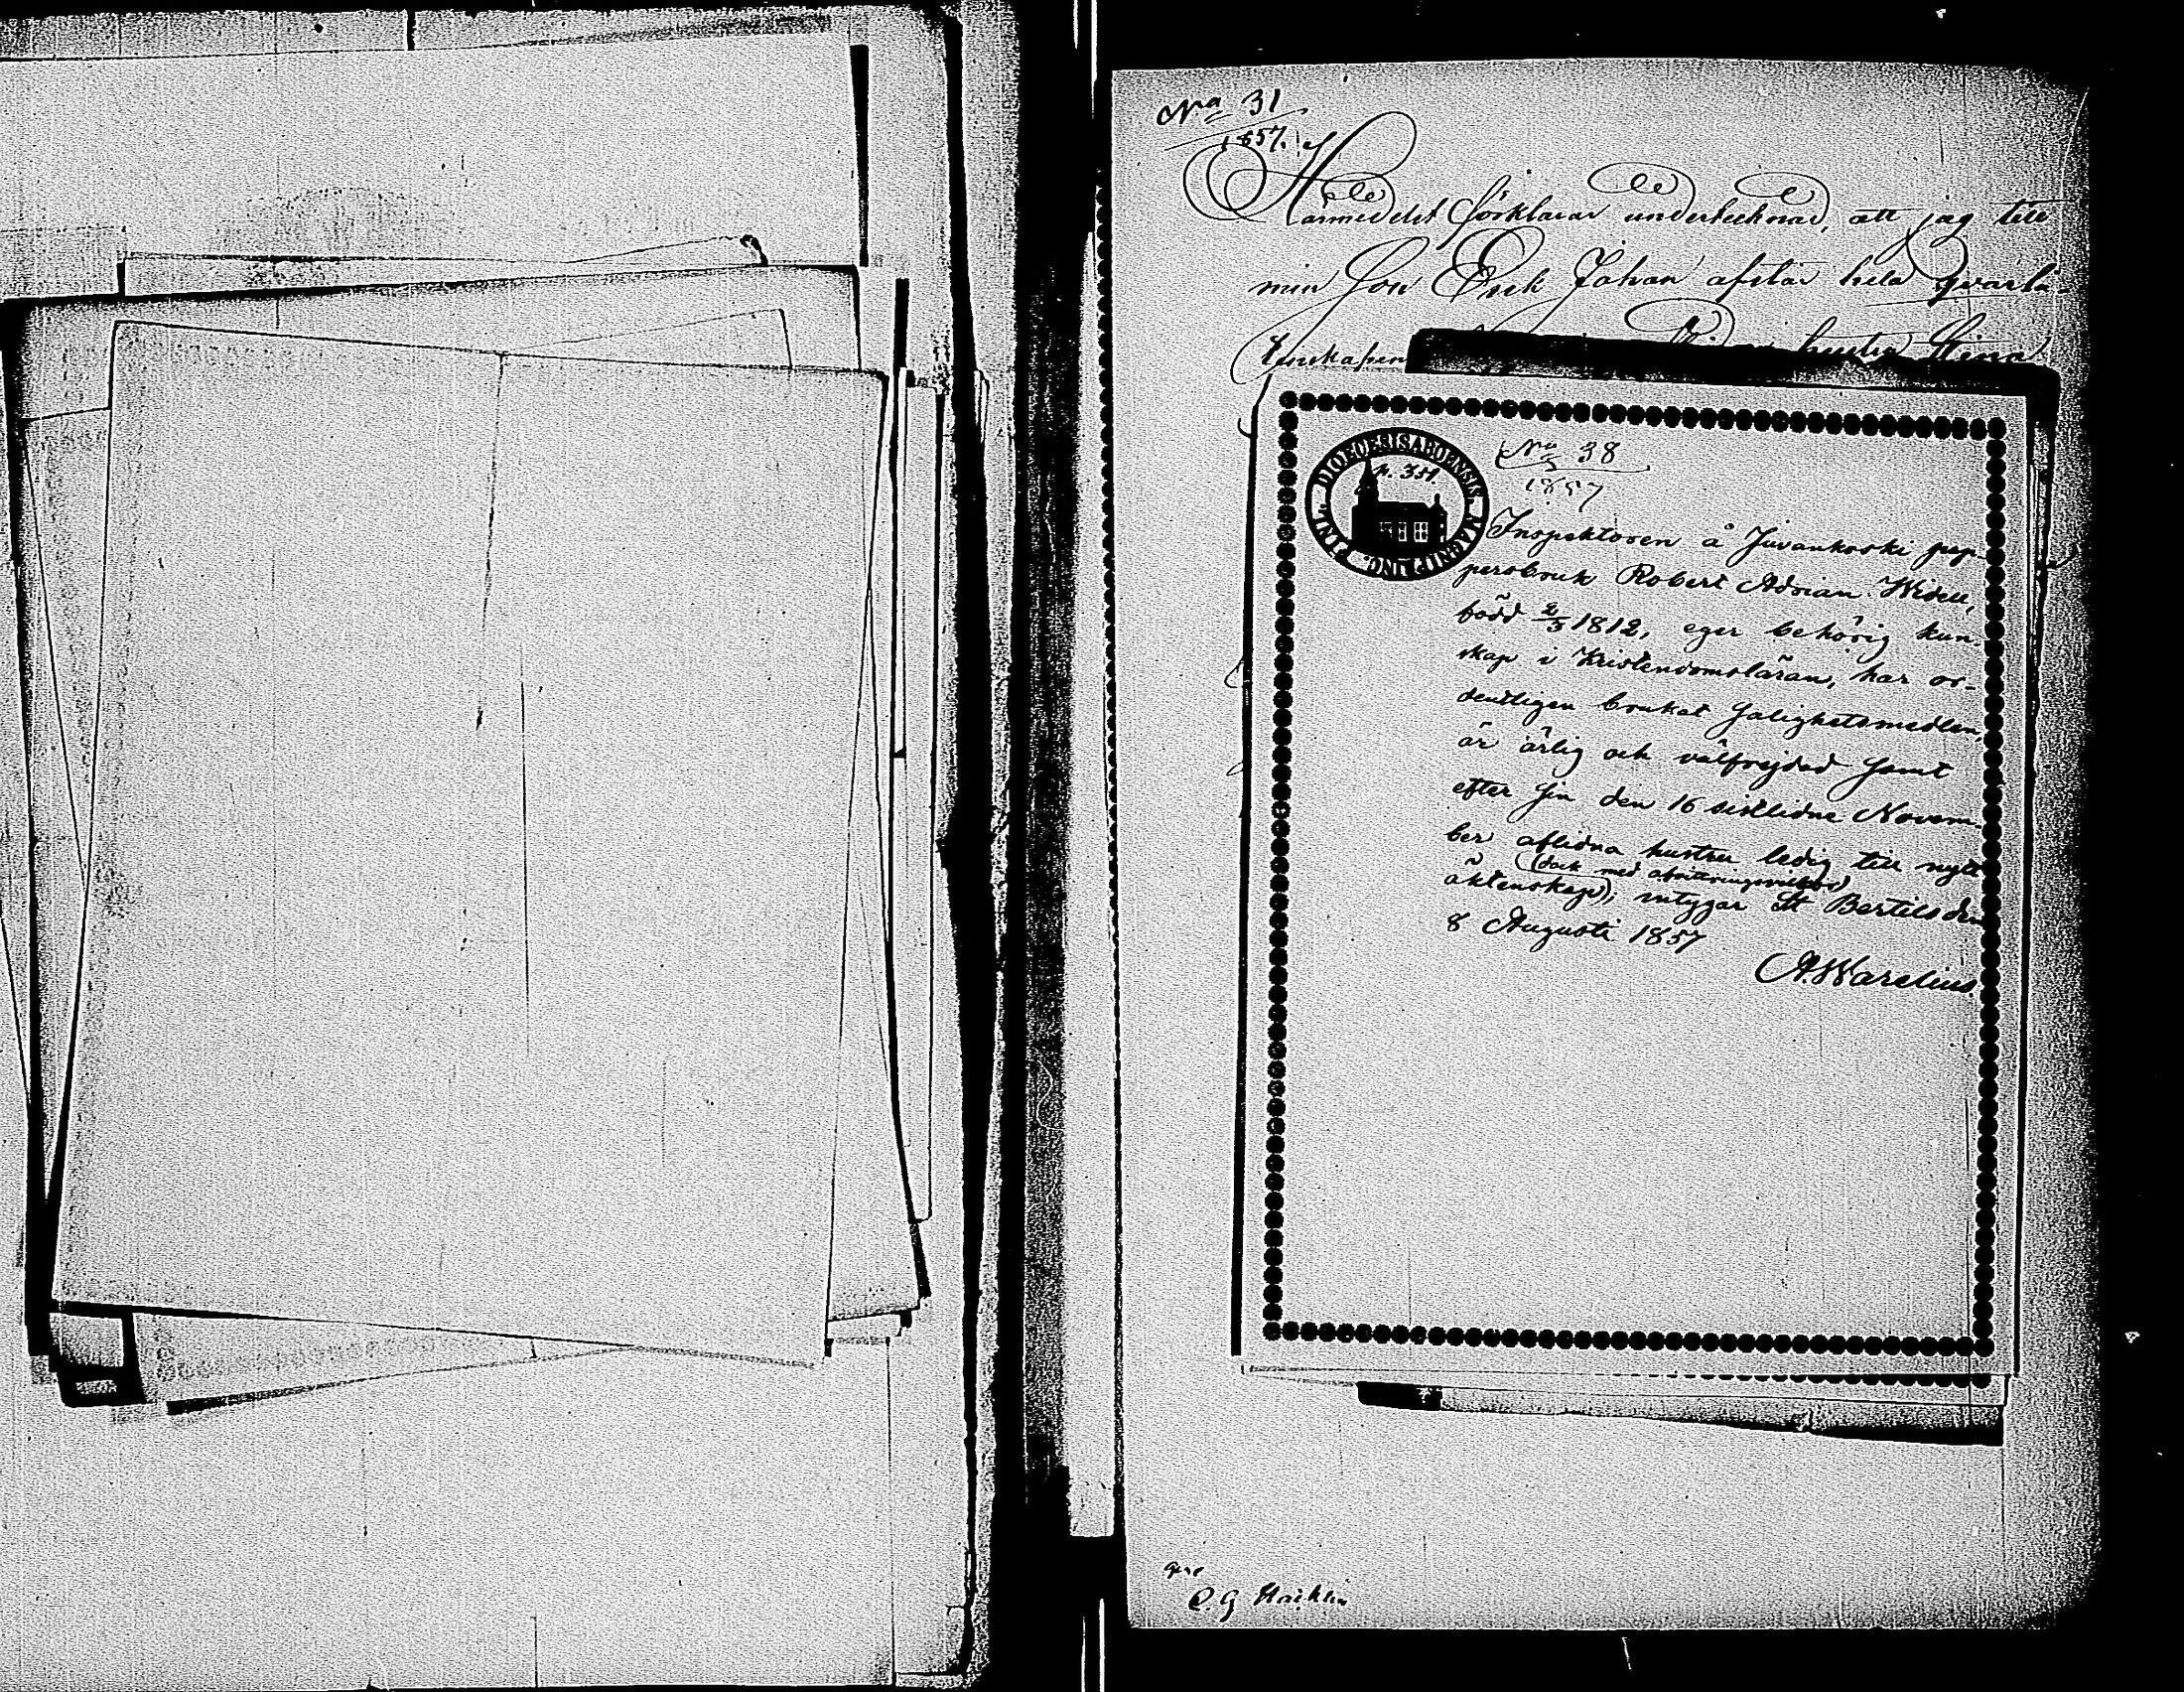 No 31
1857.
Härmedelst förklarar undertecknad, att jag till
min Son Erik Johan afstår hela qvarlå-
tenskapen hustru Stina
DIOECESIS ABOENSIS MAGNI PRINC. FINL.
No 38
1857
Inspektoren å Juvankoski pap-
persbruk Robert Adrian Widell,
född 2/3 1812, eger behörig kun-
skap i Kristendomsläran, har or-
dentligen brukat Salighetsmedlen,
är ärlig och välfrejdad samt
efter sin den 16 sistlidne Novem-
ber aflidna hustru ledig till nytt
(dock med afvittringsvilkor)
äktenskap, intygar St Bertils den
8 Augusti 1857
A. Warelius.
C. G.